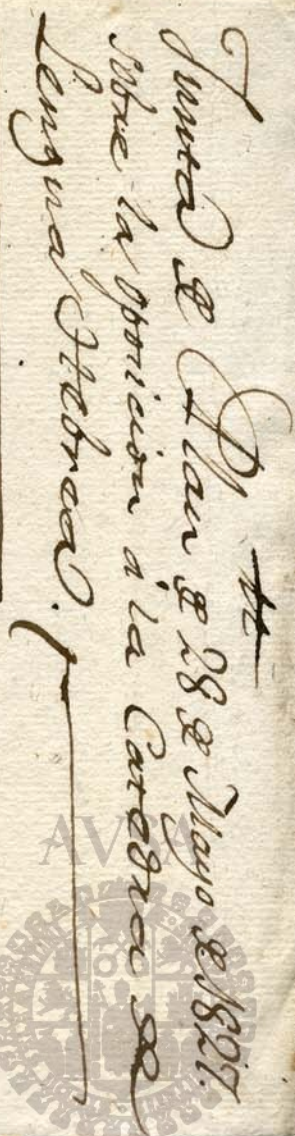 Junta de Plan de 28 de Mayo de 1827.
sobre la oposicion á la Catedra de
Lengua Hebrea.
AVSA